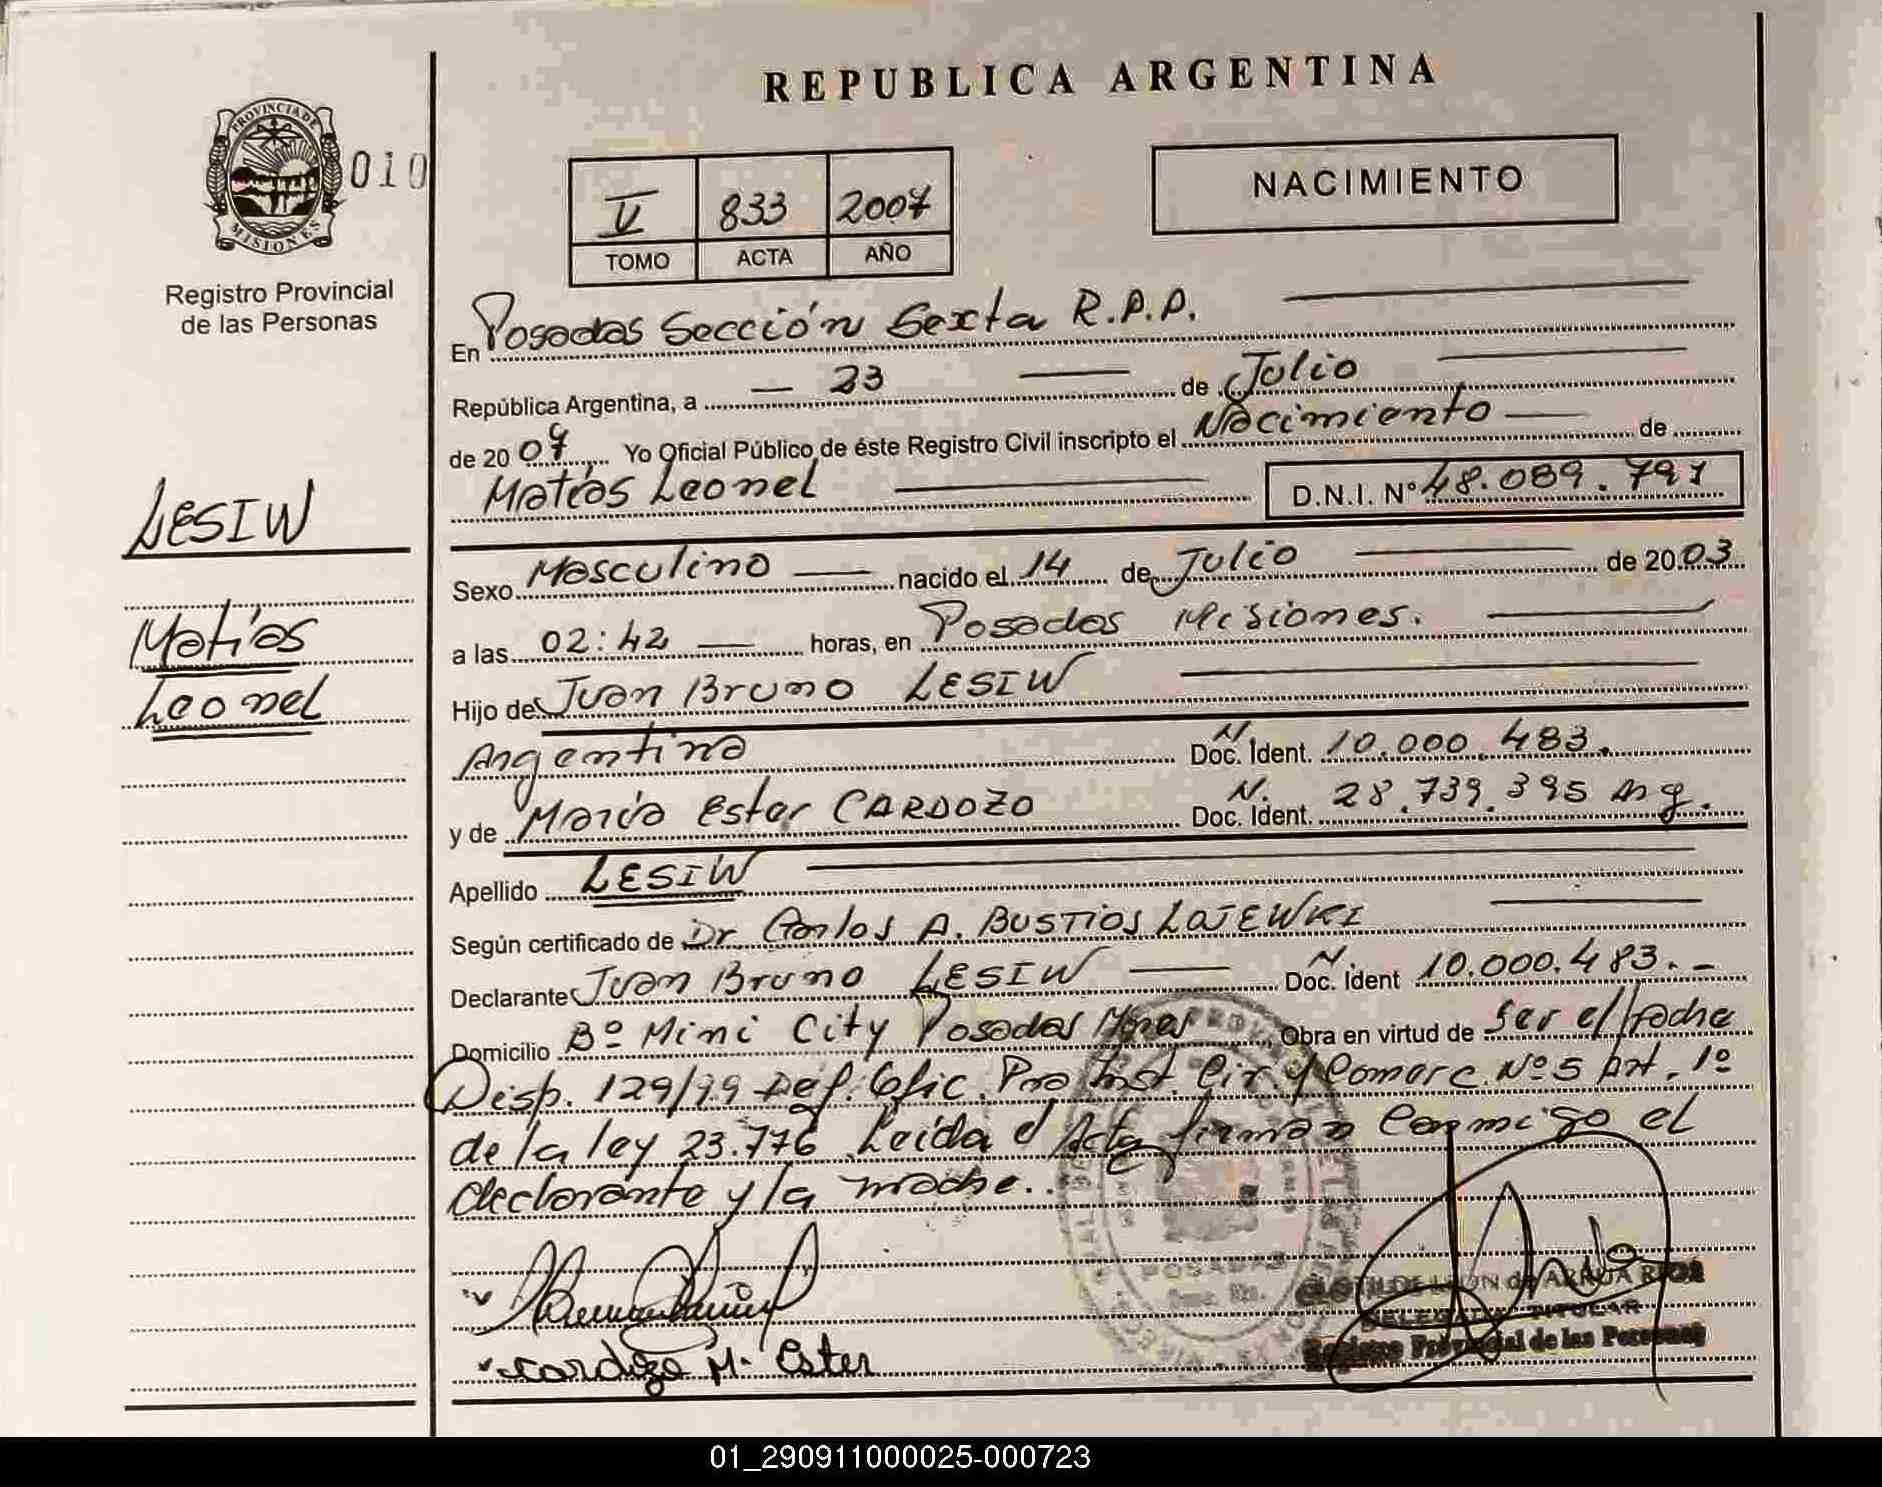 REPUBLICA ARGENTINA
PROVINCIA DE
MISIONES
010
Registro Provincial
de las Personas
V 833 2007
TOMO ACTA AÑO
NACIMIENTO
En Posadas Sección Sexta R.P.P.
República Argentina, a 23 de Julio
de 2007 Yo Oficial Público de éste Registro Civil inscripto el Nacimiento de
Matías Leonel D.N.I. Nº 48.089.791
LESIW
Matías
Leonel
Sexo Masculino nacido el 14 de Julio de 2003
a las 02:42 horas, en Posadas Misiones.
Hijo de Juan Bruno LESIW
Argentino N. Doc. Ident. 10.000.483.
y de María Ester CARDOZO N. Doc. Ident. 28.739.395 Arg.
Apellido LESIW
Según certificado de Dr. Carlos A. BUSTIOS LAJEWKI
Declarante Juan Bruno LESIW N. Doc. Ident 10.000.483.-
Domicilio Bº Mini City Posadas Mnes Obra en virtud de Ser el Padre
Disp. 129/99 Def. Ofic. Pro Inst. Cir y Comerc. Nº 5 Art. 1º
de la ley 23.776 Leida el Acta firman conmigo el
declarante y la madre..
POSADAS
Cardozo M. Ester
de ARRUA RIOS
DELEGADA TITULAR
Registro Provincial de las Personas
01_290911000025-000723